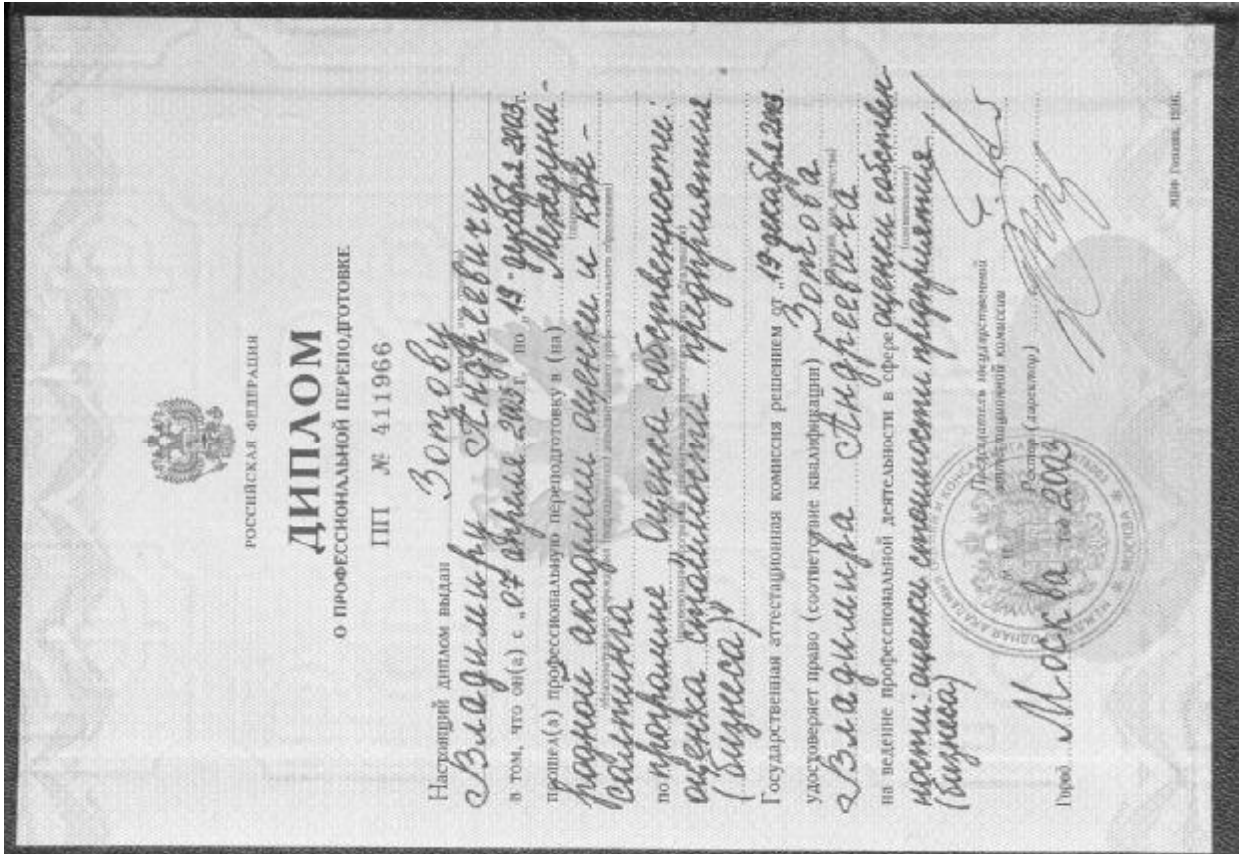 РОССИЙСКАЯ ФЕДЕРАЦИЯ
ДИПЛОМ
О ПРОФЕССИОНАЛЬНОЙ ПЕРЕПОДГОТОВКЕ
ПП № 411966
Настоящий диплом выдан Зотову
Владимиру Андреевичу
в том, что он(а) с „07" апреля 2003г. по „19" декабря 2003г.
прошел(а) профессиональную переподготовку в (на) Междуна-
родной академии оценки и кон-
салтинга
по программе „Оценка собственности:
оценка стоимости предприятия
(бизнеса)"
Государственная аттестационная комиссия решением от „19" декабря 2003
удостоверяет право (соответствие квалификации) Зотова
Владимира Андреевича
на ведение профессиональной деятельности в сфере оценки собствен-
ности: оценки стоимости предприятия
(бизнеса)
Председатель государственной
аттестационной комиссии
Ректор (директор)
Город Москва год 2003